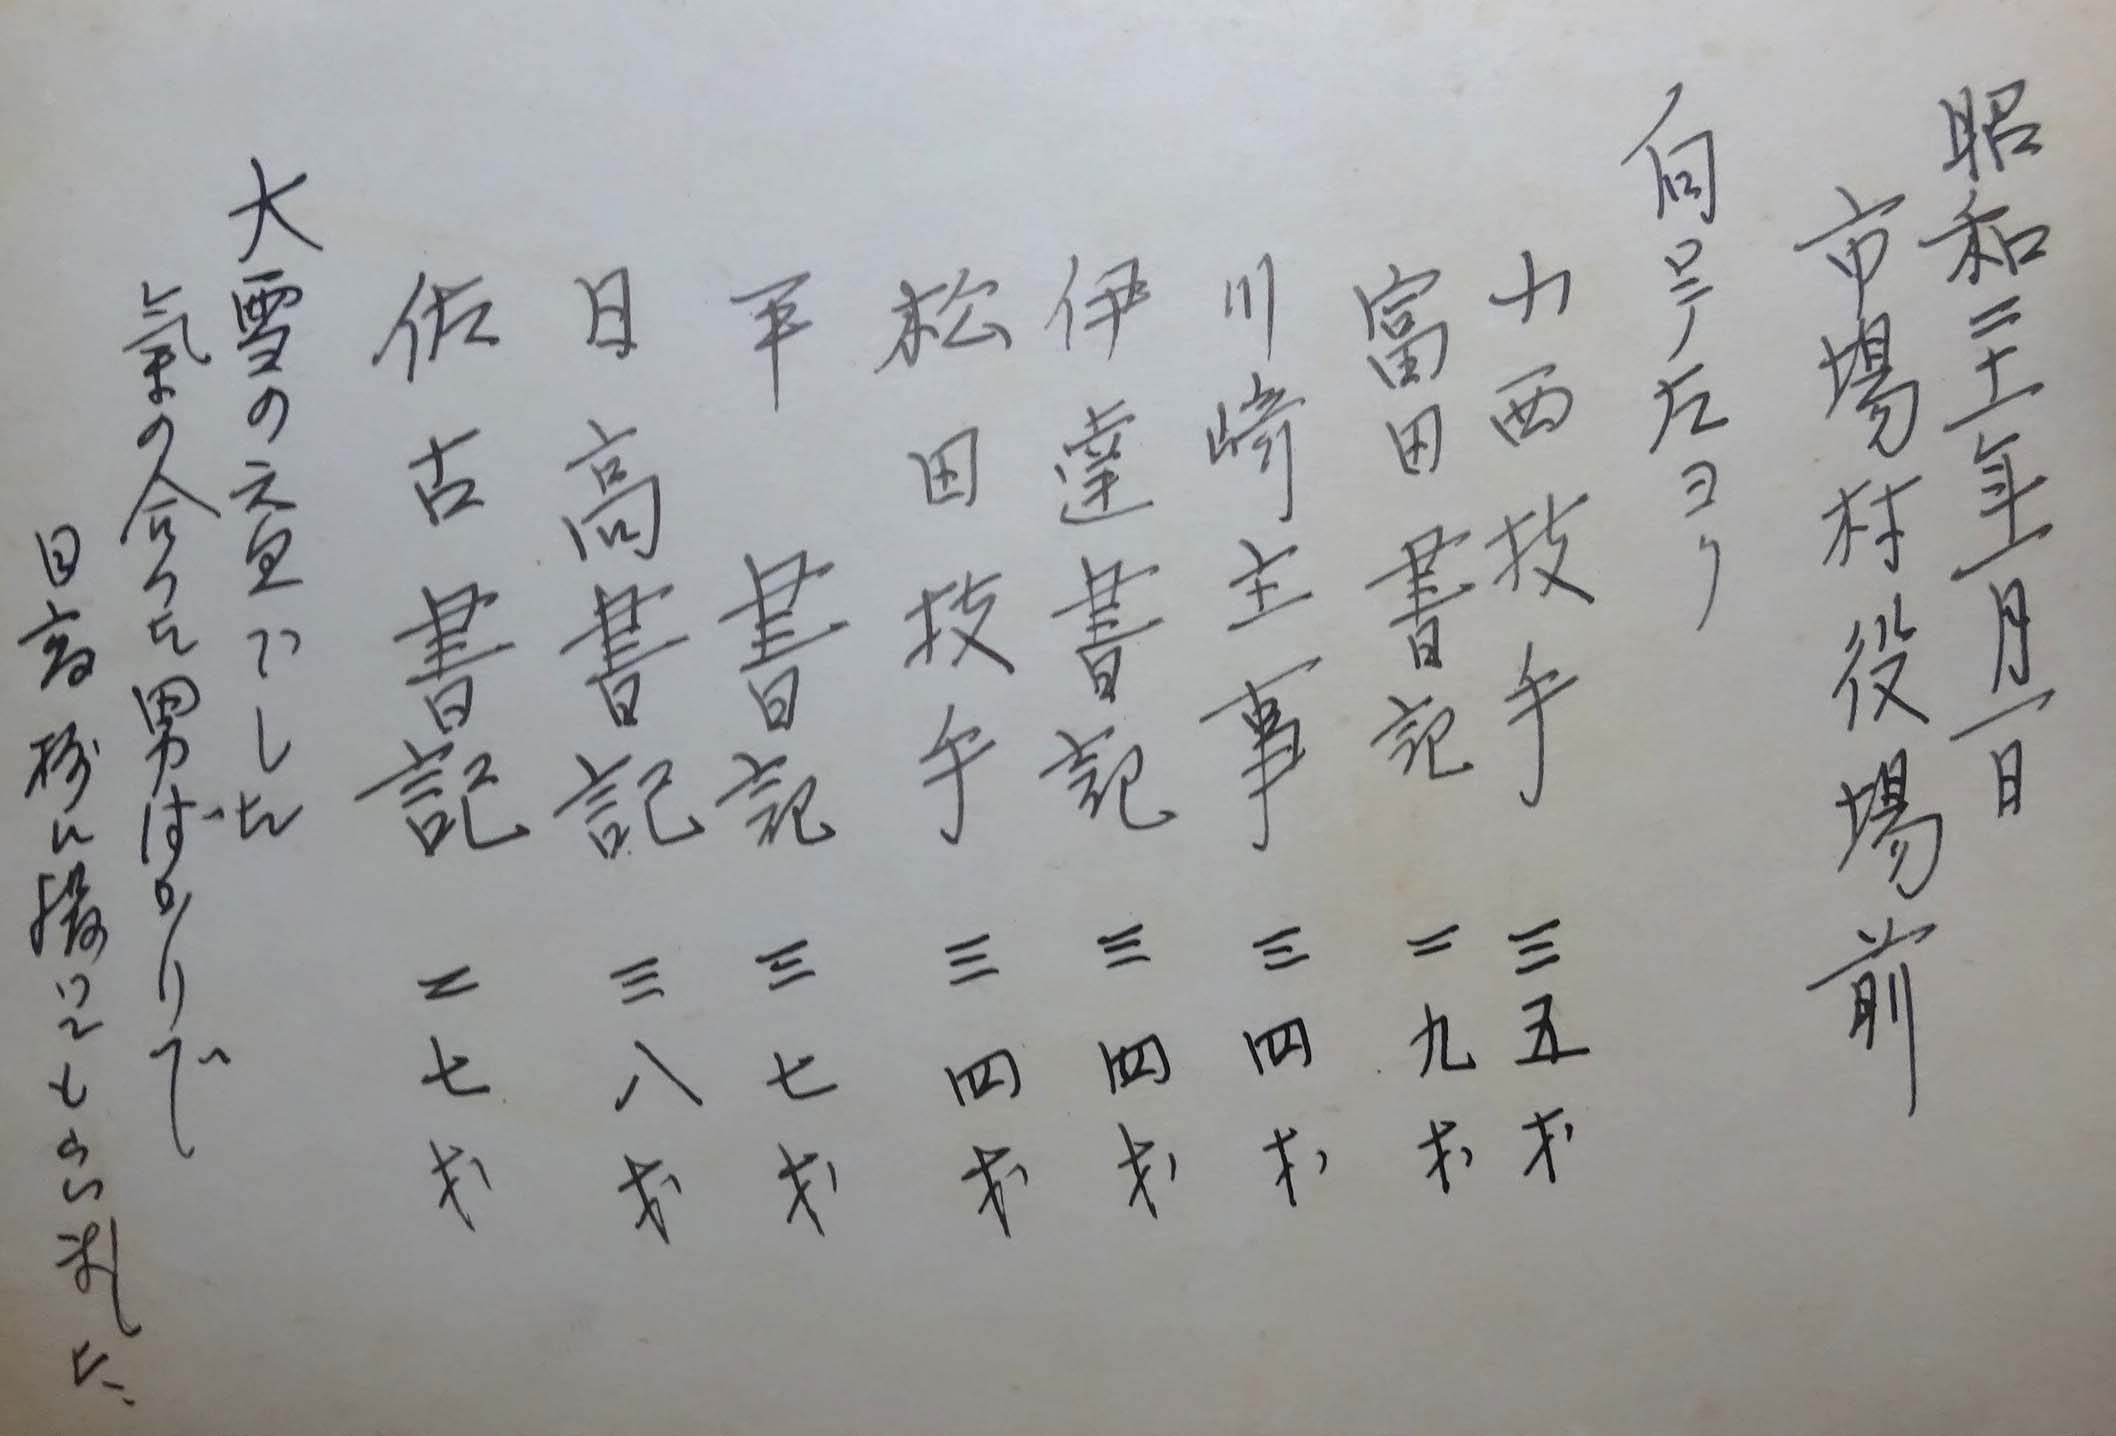 昭和二十一年一月一日
市場村役場前
向ッテ左ヨリ
小西技手 三五才
富田書記 二九才
川崎主事 三四才
伊達書記 三四才
松田技手 三四才
平 書記 三七才
日高書記 三八才
佐古書記 二七才
大雪の元旦でした
氣の合った男ばかりで
日高様に撮ってもらいました、